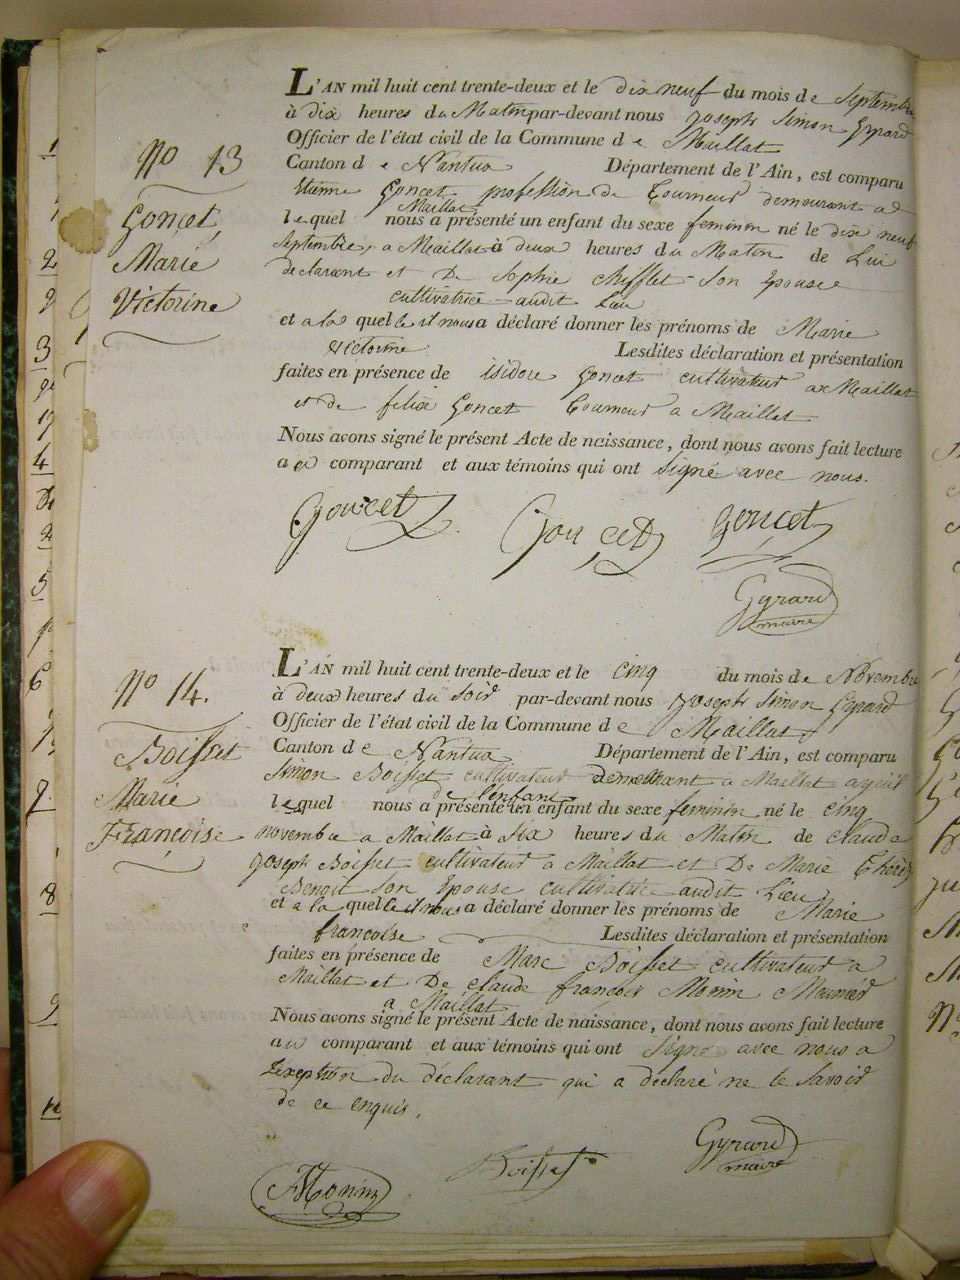 No 13
Goncet
Marie
Victorine
L'AN mil huit cent trente-deux et le dix neuf du mois de Septembre
à dix heures du Matin par-devant nous Joseph Simon
Officier de l'état civil de la Commune de Maillat
Canton de Nantua Département de l'Ain, est comparu
Goncet profession de Tourneur demeurant a
Maillat
lequel nous a présenté un enfant du sexe feminin né le dix neuf
Septembre, a Maillat à deux heures du Matin de Lui
declarant et De Sophie Chifflet Son Epouse
cultivatrice audit Lieu
et a la quelle il nous a déclaré donner les prénoms de Marie
victorine Lesdites déclaration et présentation
faites en présence de isidore Goncet cultivateur a Maillat
et de felix Goncet Tourneur a Maillat
Nous avons signé le présent Acte de naissance, dont nous avons fait lecture
au comparant et aux témoins qui ont Signé avec nous.
Goncet Goncet Goncet
Gyrard
maire
No 14.
Boisset
Marie
Françoise
L'AN mil huit cent trente-deux et le cinq du mois de Novembre
à deux heures du Soir par-devant nous Joseph Simon
Officier de l'état civil de la Commune de Maillat
Canton de Nantua Département de l'Ain, est comparu
Simon Boisset cultivateur demeurant a Maillat
de l'enfant
lequel nous a présenté un enfant du sexe feminin né le cinq
novembre a Maillat à Six heures du Matin de claude
Joseph Boisset cultivateur a Maillat et De Marie
Benoit Son Epouse cultivatrice audit Lieu
et a la quelle il nous a déclaré donner les prénoms de Marie
francoise Lesdites déclaration et présentation
faites en présence de Marc Boisset cultivateur a
Maillat et De claude francois Monin Meunier
a Maillat
Nous avons signé le présent Acte de naissance, dont nous avons fait lecture
au comparant et aux témoins qui ont Signé avec nous a
Lexeption du déclarant qui a déclaré ne le Savoir
de ce enquis.
Gyrard
maire
Boisset
Monin